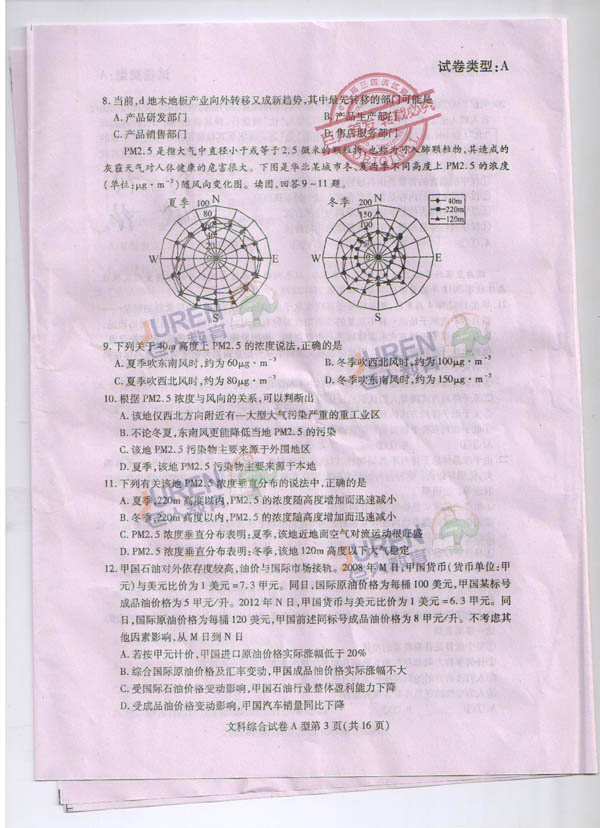 试卷类型:A
8.当前,d地木地板产业向外转移又成新趋势,其中最先转移的部门可能是
A.产品研发部门 B.产品生产部门
C.产品销售部门 D.售后服务部门
PM2.5是指大气中直径小于或等于2.5微米的颗粒物,也称为可入肺颗粒物,其造成的
灰霾天气对人体健康的危害很大。下图是华北某城市冬、夏两季不同高度上PM2.5的浓度
(单位:μg·m⁻³)随风向变化图。读图,回答9~11题。
夏季 100 N 冬季 200 N 40m
80 150 220m
60 100 120m
W E W E
S S
9.下列关于40m高度上PM2.5的浓度说法,正确的是
A.夏季吹东南风时,约为60μg·m⁻³ B.冬季吹西北风时,约为100μg·m⁻³
C.夏季吹西北风时,约为80μg·m⁻³ D.冬季吹东南风时,约为150μg·m⁻³
10.根据PM2.5浓度与风向的关系,可以判断出
A.该地仅西北方向附近有一大型大气污染严重的重工业区
B.不论冬夏,东南风更能降低当地PM2.5的污染
C.该地PM2.5污染物主要来源于外围地区
D.夏季,该地PM2.5污染物主要来源于本地
11.下列有关该地PM2.5浓度垂直分布的说法中,正确的是
A.夏季,220m高度以内,PM2.5的浓度随高度增加而迅速减小
B.冬季,220m高度以内,PM2.5的浓度随高度增加而迅速减小
C.PM2.5浓度垂直分布表明:夏季,该地近地面空气对流运动很旺盛
D.PM2.5浓度垂直分布表明:冬季,该地120m高度以下大气稳定
12.甲国石油对外依存度较高,油价与国际市场接轨。2008年M日,甲国货币(货币单位:甲
元)与美元比价为1美元=7.3甲元。同日,国际原油价格为每桶100美元,甲国某标号
成品油价格为5甲元/升。2012年N日,甲国货币与美元比价为1美元=6.3甲元。同
日,国际原油价格为每桶120美元,甲国前述同标号成品油价格为8甲元/升。不考虑其
他因素影响,从M日到N日
A.若按甲元计价,甲国进口原油价格实际涨幅低于20%
B.综合国际原油价格及汇率变动,甲国成品油价格实际涨幅不大
C.受国际石油价格变动影响,甲国石油行业整体盈利能力下降
D.受成品油价格变动影响,甲国汽车销量同比下降
文科综合试卷A型第3页(共16页)